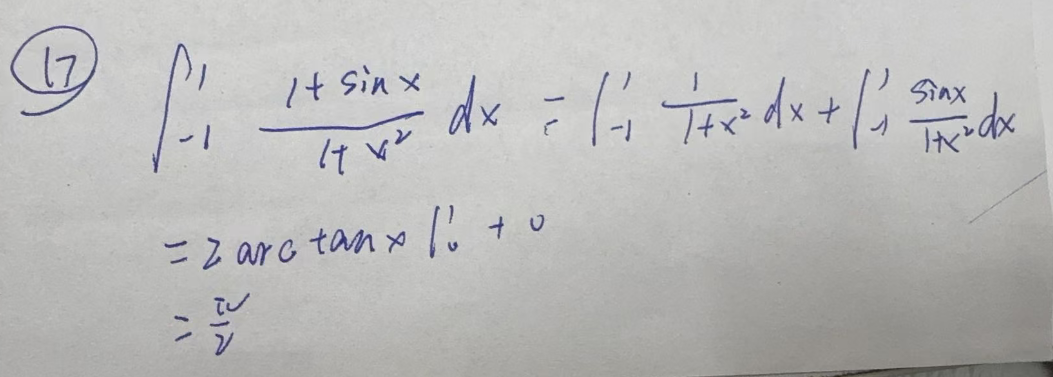 ⑰ ∫₋₁¹ (1+sinx)/(1+x²) dx = ∫₋₁¹ 1/(1+x²) dx + ∫₋₁¹ sinx/(1+x²) dx
= 2 arctanx |₀¹ + 0
= π/2